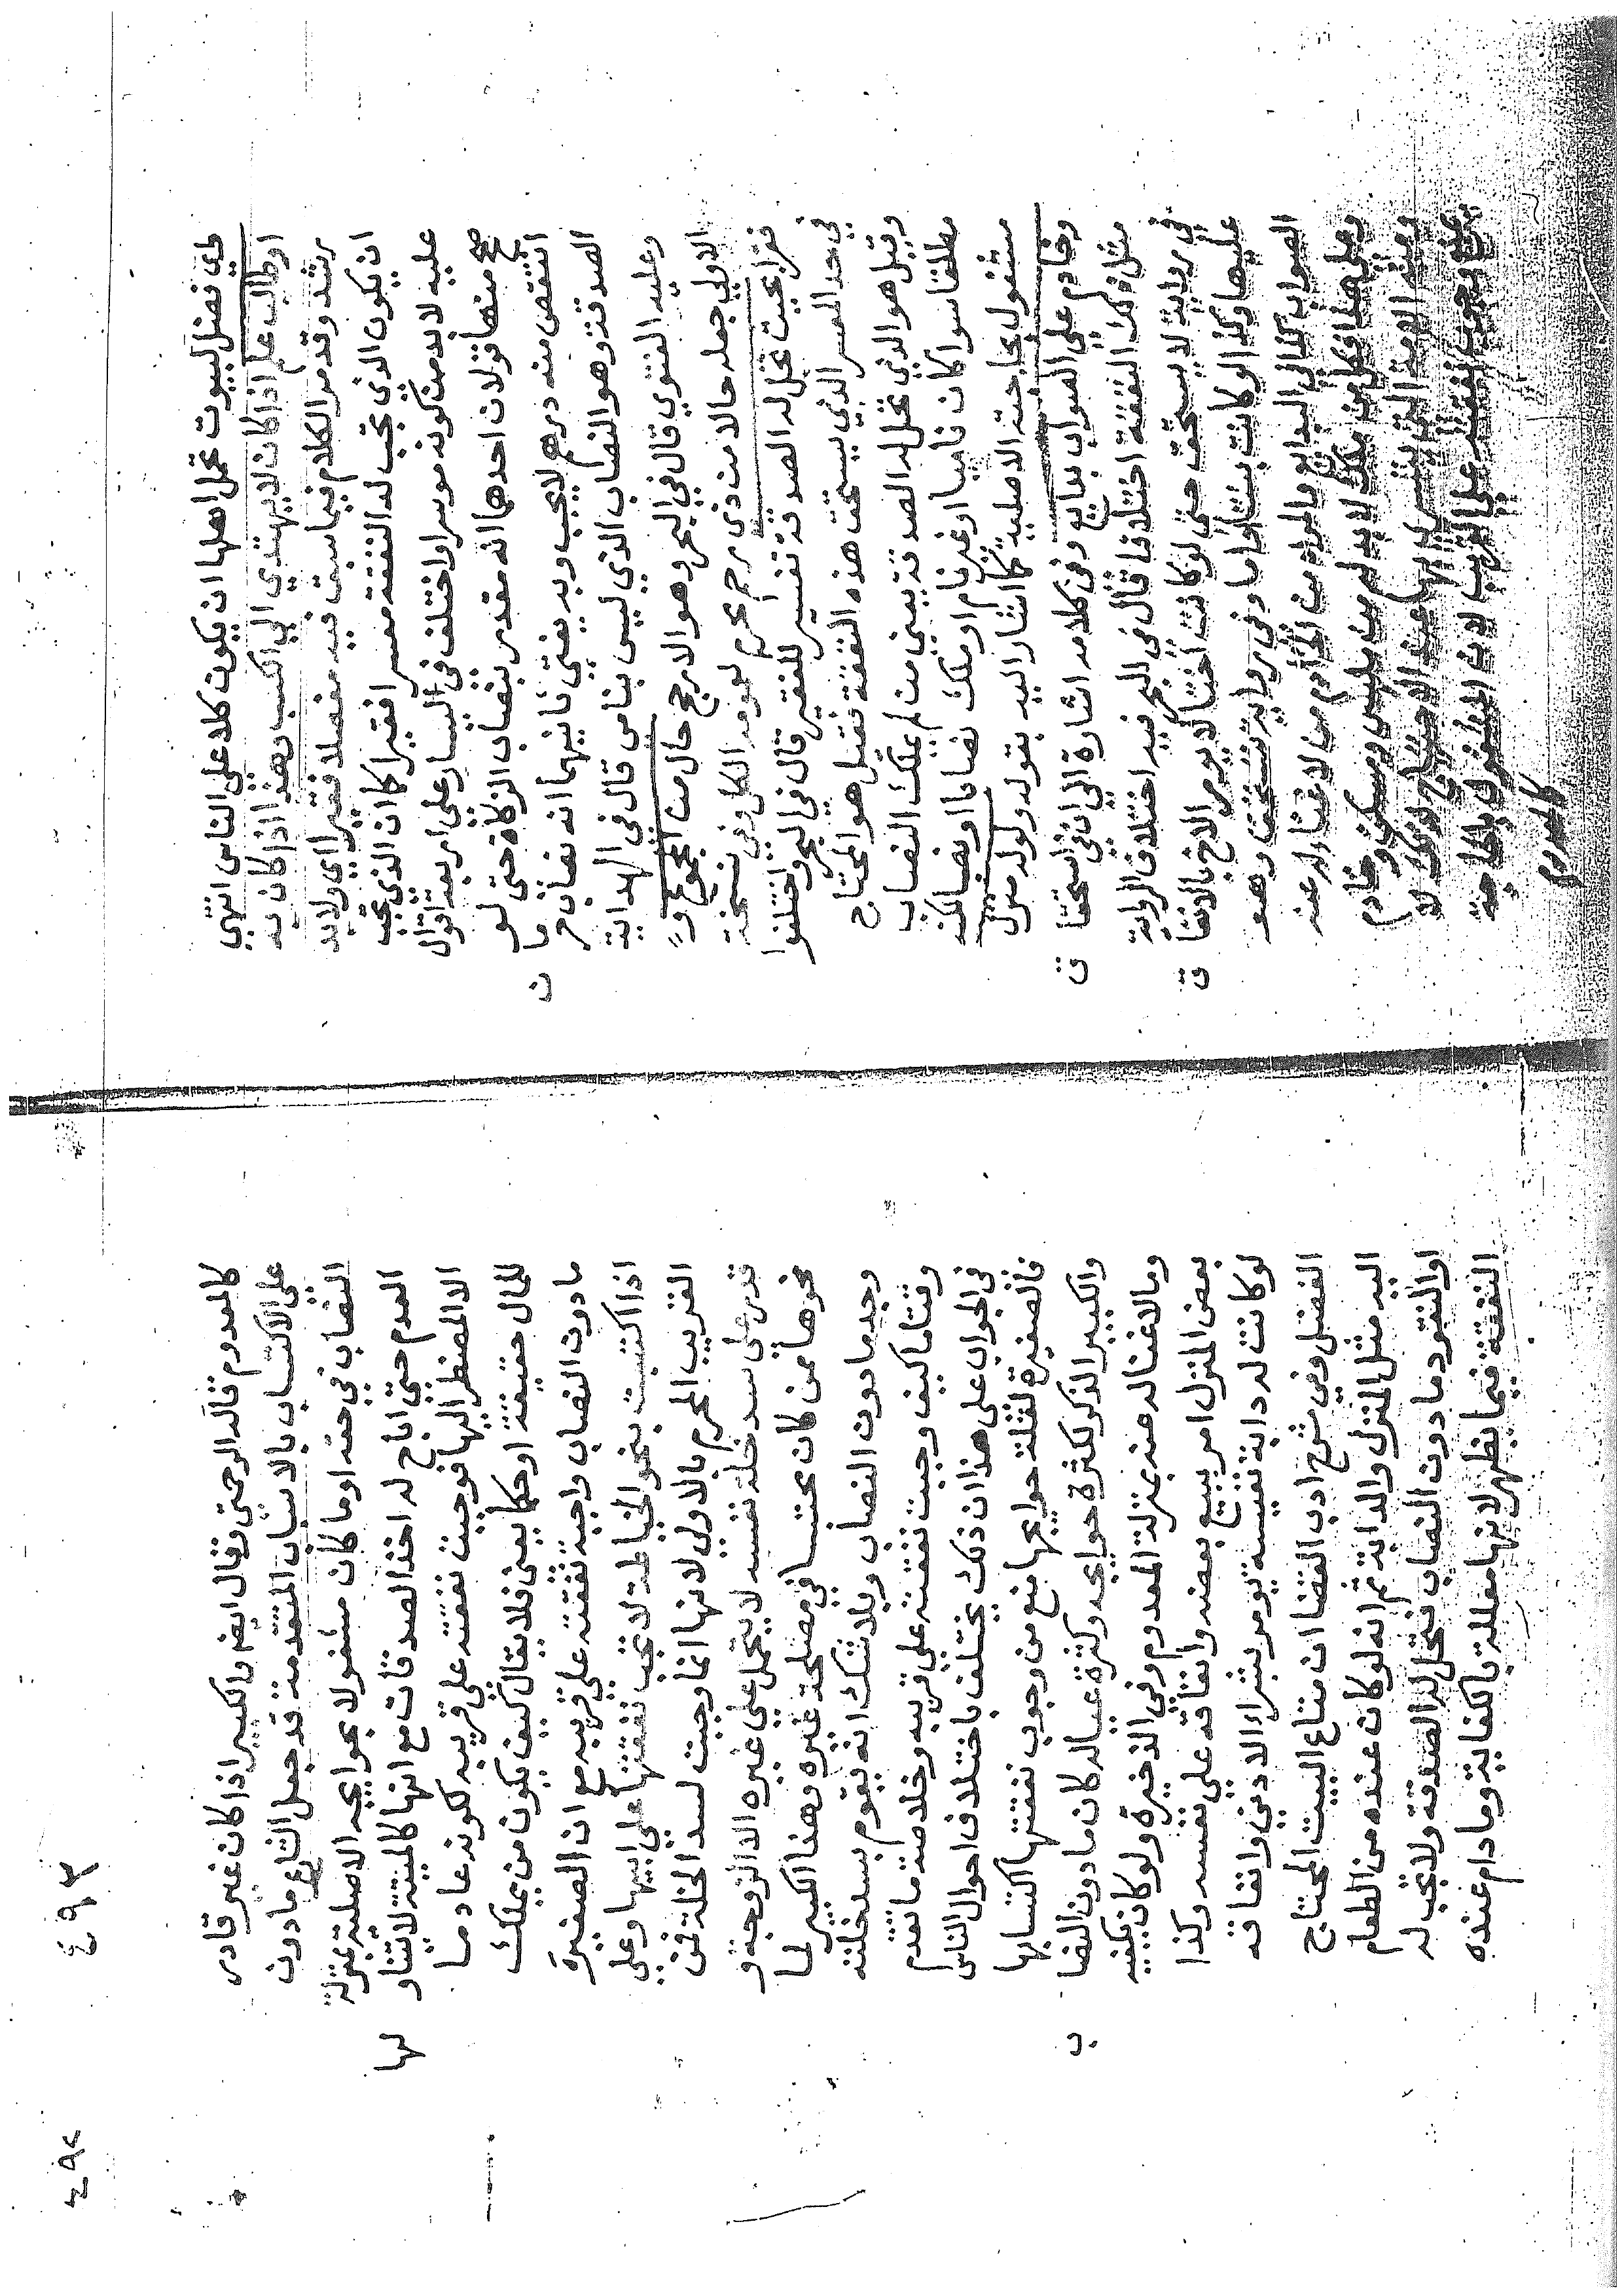 لذي فضل لبيوت تحمل اهلها ان يكون كلا على الناس انتهى
او طالب علم اذا كان لا يهتدي الى الكسب وهذا اذا كان به
رشد وقد مر الكلام فيما سبق فيه مفصلا فقيرا اي ولابد
ان يكون الذي تجب له النفقة معسرا فقيرا كما ان الذي تجب
عليه لابد من كونه موسرا واختلف في اليسار على اربعة اقوال
صحح منها قولان احدهما انه مقدر بنصاب الزكاة حتى لو
انتقص منه درهم لا يجب وبه يفتى ثانيهما انه نصاب حرما
ن
الصدقة وهو النصاب الذي ليس بنامي قال في الهداية
وعليه الفتوى قال في البحر وهو الارجح حال من المجموع و
الاولى جعله حالا من ذي رحم محرم لعومه الكل وفي نسخة
فقرا بحيث تحل له الصدقة تفسير للفقير قال في البحر واختلفوا
في حد المعسر الذي يستحق هذه النفقة فقيل هو المحتاج
وقيل هو الذي تحل له الصدقة يعني من لم يملك النصاب
مطلقا سوا كان ناميا او غير نام او ملك نصابا ولكنه
مشغول بحاجته الاصلية كما اشار اليه بقوله ولو له منزل
وخادم على الصواب بدايع وفي كلامه اشارة الى ان في استحقا
ق
مثل ذلك النفقة اختلافا قال في البحر فيه اختلاف الرواية
في رواية لا يستحق حتى لو كانت اختا لا يومر الاخ بالانفا
ق
عليها وكذا لو كانت بنتا او اما وفي رواية تستحق وهو
الصواب كما في البدايع والمراد من الخادم من لا غنا له عنه
كالمعدوم
كالمعدوم قاله الرحمتي وقال ايضا والكبير اذا كان غير قادر
على الاكتساب بالاسباب المتقدمة قد جعل الشارع ما دون
النصاب في حقه او ما كان مشغولا بحوايجه الاصلية بمنزلة
العدم حتى اباح له اخذ الصدقات مع انها كالميتة لا تتناو
لها
الا للمضطر اليها فوجبت نفقته على قريبه لكونه عادما
للمال حقيقة او حكما يعني فلا يقال كيف يكون من يملك
ما دون النصاب واجبة نفقته على قريبه مع ان الصغيرة
اذا اكتسبت بنحو الخياطة لا تجب نفقتها على ابيها وعلى
القريب المحرم بالاولى لانها انما وجبت لسد الخلة فمن
قدر على سد خلة نفسه لا يتحمل على غيره الا الزوجة و
نحوها ممن كان محتبسا في مصلحة غيره وهنا الكبير لما
وجد ما دون النصاب وبلا شك انه يقوم بسد خلته
وقتا ما كيف وجبت نفقته على قريبه وخلاصة ما تقدم
في الجواب على هذا ان ذلك يختلف باختلاف احوال الناس
فالصغيرة لقلة حوايجها منع من وجوب نفقتها اكتسابها
والكبير الذكر لكثرة حوايجه وكثرة عياله كان ما دون النصا
ب
وما لا غنا له عنه بمنزلة المعدوم وفي الذخيرة ولو كان يكفيه
بعض المنزل امر ببيع بعضه وانفاقه على نفسه وكذا
لو كانت له دابة نفيسة يومر بشراء الادنى وانفاقه
الفضل وفي شرح ادب القضا ان متاع البيت المحتاج
اليه مثل المنزل والدابة ثم انه لو كان عنده من الطعام
او النقود ما دون النصاب فتحل له الصدقة ولا تجب له
النفقة فيما يظهر لانها معللة بالكفاية وما دام عنده
٤٩٣
٤٩٢